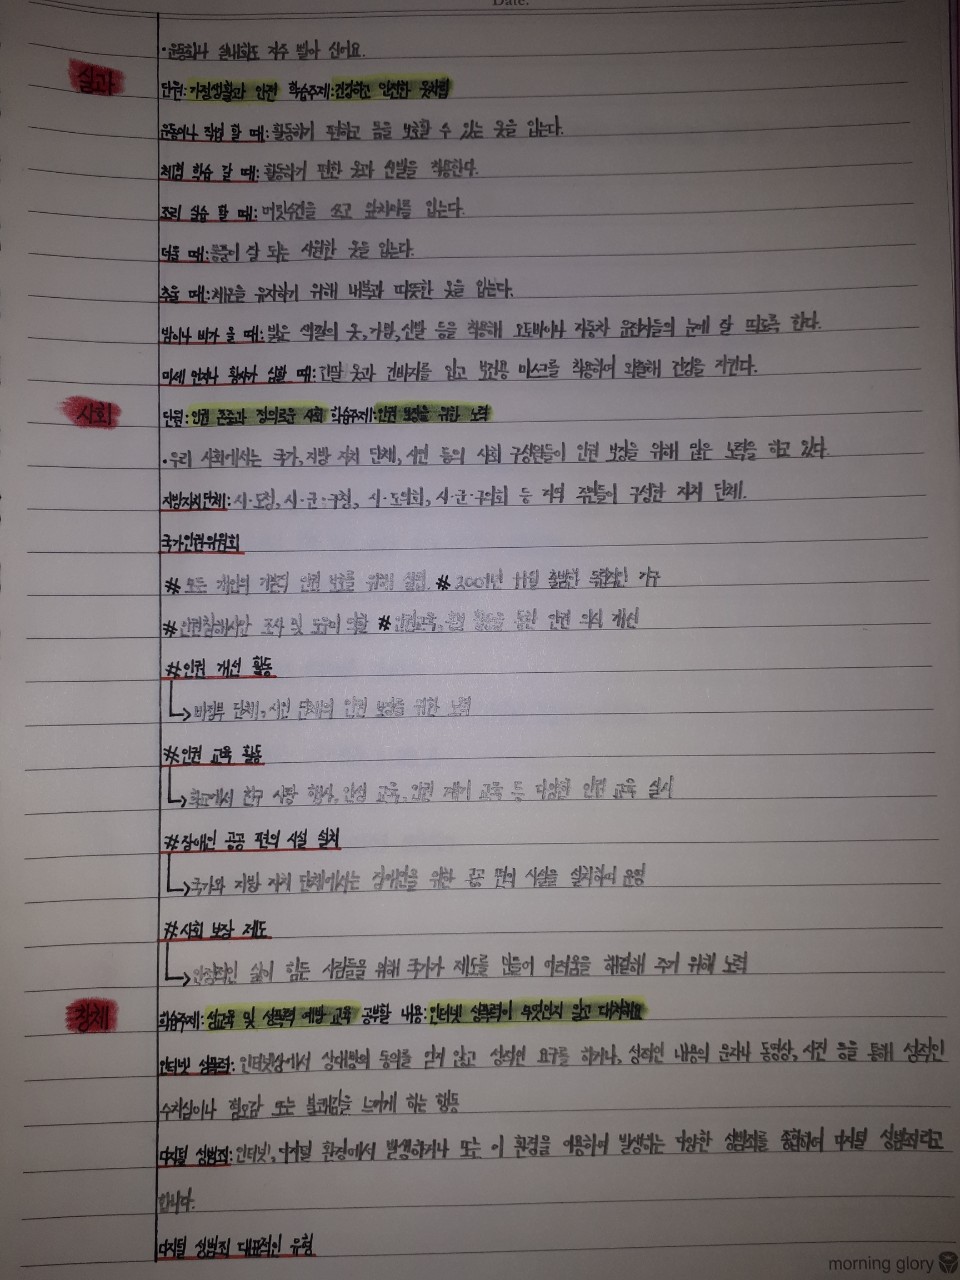 Date.
·운동화나 실내화도 자주 빨아 신어요.
실과
단원:가정생활과 안전 학습주제:건강하고 안전한 옷차림
운동이나 작업 할 때:활동하기 편하고 몸을 보호할 수 있는 옷을 입는다.
체험 학습 갈 때:활동하기 편한 옷과 신발을 착용한다.
조리 실습 할 때:머릿수건을 쓰고 앞치마를 입는다.
더울 때:통풍이 잘 되는 시원한 옷을 입는다.
추울 때:체온을 유지하기 위해 내복과 따뜻한 옷을 입는다.
밤이나 비가 올 때:밝은 색깔의 옷,가방,신발 등을 착용해 오토바이나 자동차 운전자들의 눈에 잘 띄도록 한다.
미세 먼지나 황사가 심할 때:긴팔 옷과 긴바지를 입고 보건용 마스크를 착용하여 외출해 건강을 지킨다.
사회
단원:인권 존중과 정의로운 사회 학습주제:인권 보장을 위한 노력
·우리 사회에서는 국가,지방 자치 단체,시민 등의 사회 구성원들이 인권 보장을 위해 많은 노력을 하고 있다.
지방자치단체:시·도청,시·군·구청, 시·도의회,시·군·구의회 등 지역 주민들이 구성한 자치 단체.
국가인권위원회
#모든 개인의 기본적 인권 보호를 위해 설립. #2001년 11월 출범한 독립적인 기구
#인권침해사안 조사 및 도움이 역할 #인권교육, 활동을 통한 인권 의식 개선
#인권 개선 활동
→비정부 단체,시민 단체의 인권 보장을 위한 노력
#인권 교육 활동
→학교에서 친구 사랑 행사,인성 교육,인권 계기 교육 등 다양한 인권 교육 실시
#장애인 공공 편의 시설 설치
→국가와 지방 자치 단체에서는 장애인을 위한 공공 편의 시설을 설치하여 운영
#사회 보장 제도
→안정적인 삶이 힘든 사람들을 위해 국가가 제도를 만들어 어려움을 해결해 주기 위해 노력
창체
학습주제:성교육 및 성폭력 예방 교육 공부할 내용:인터넷 성폭력이 무엇인지 알고 대처해요
인터넷 성폭력:인터넷상에서 상대방의 동의를 얻지 않고 성적인 요구를 하거나,성적인 내용의 문자나 동영상,사진 등을 통해 성적인
수치심이나 혐오감 또는 불쾌감을 느끼게 하는 행동
디지털 성범죄:인터넷,디지털 환경에서 발생하거나 또는 이 환경을 이용하여 발생하는 다양한 성범죄를 종합하여 디지털 성범죄라고
합니다.
디지털 성범죄 대표적인 유형
morning glory